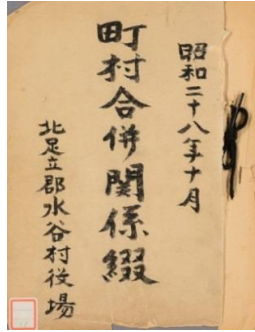 昭和二十八年十月
町村合併関係綴
北足立郡水谷村役場